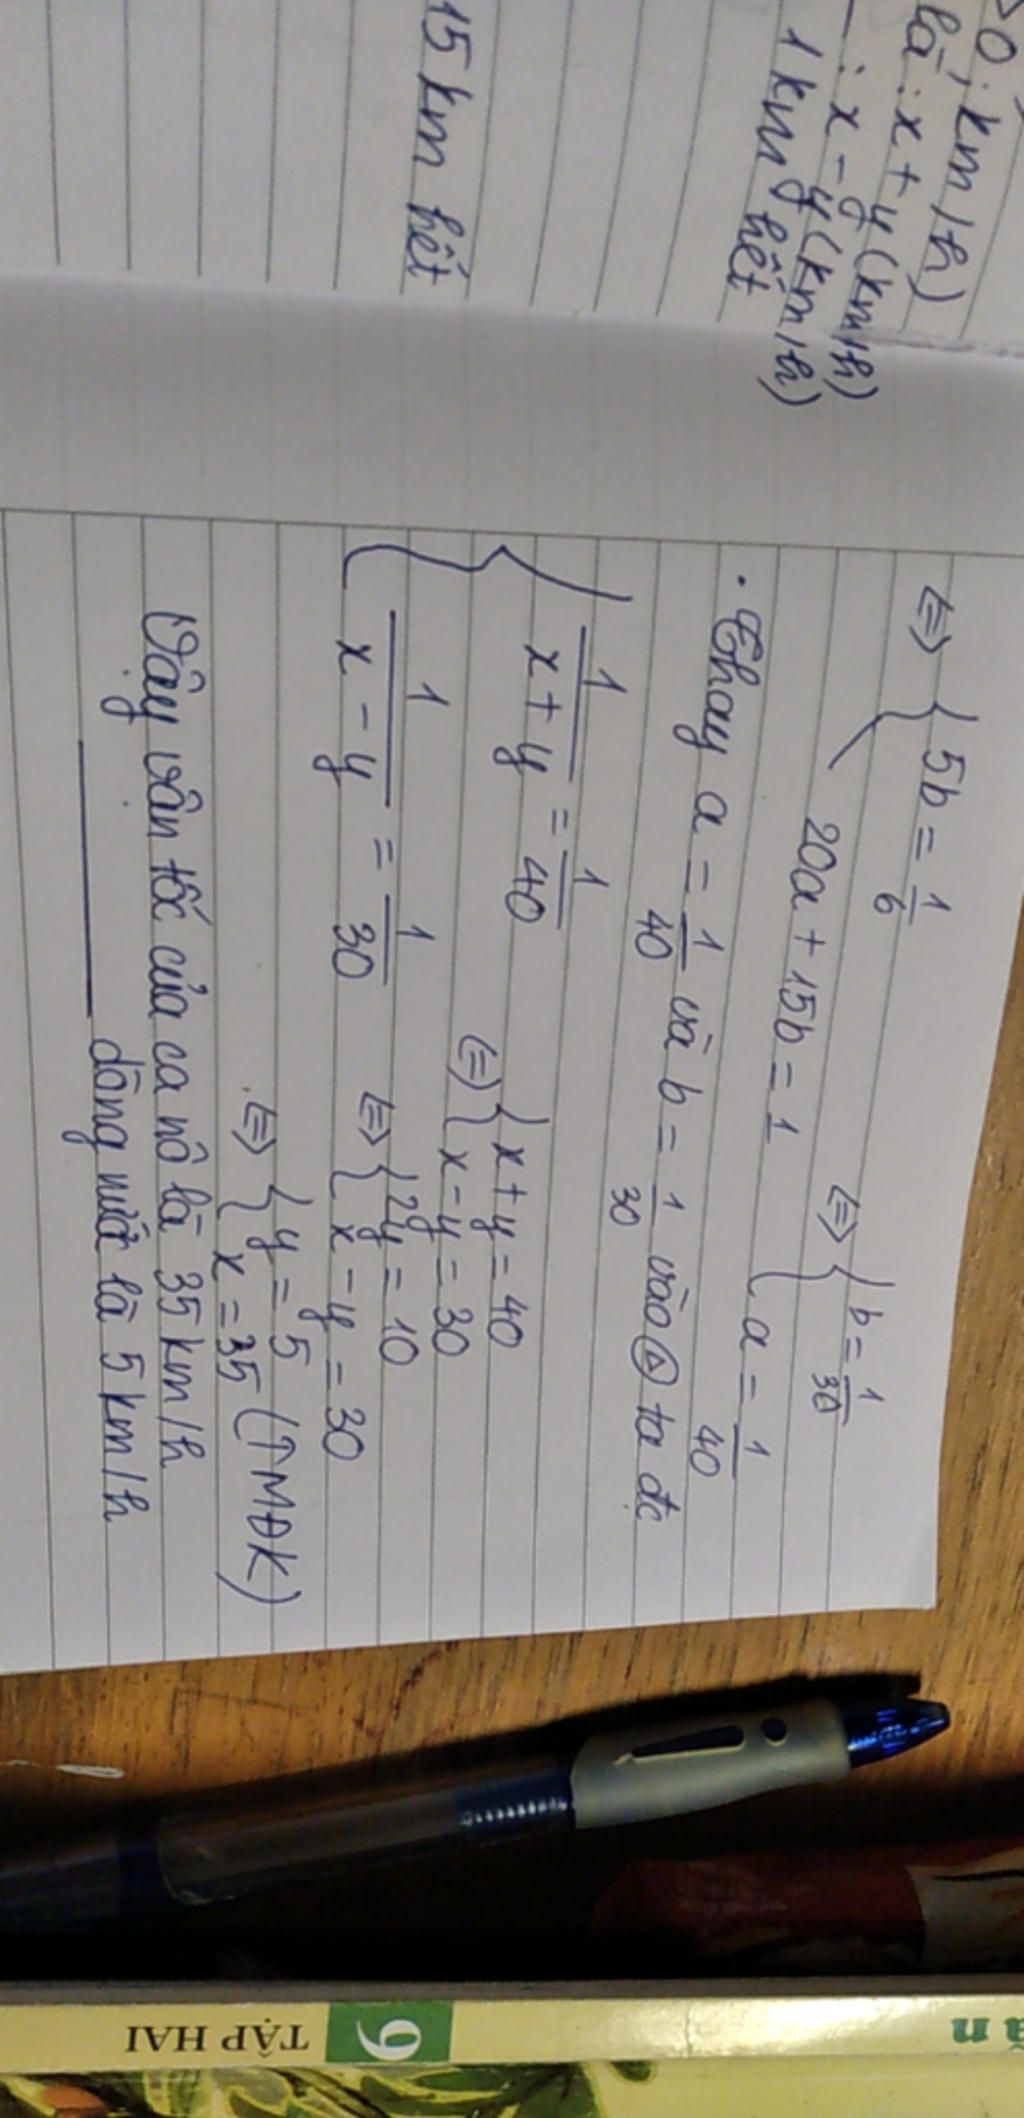 >0; km/h)
là: x + y (km/h)
: x - y (km/h)
1 km hết
15 km hết
⇔ { 5b = 1/6
20a + 15b = 1
⇔ { b = 1/30
a = 1/40
. Thay a = 1/40 và b = 1/30 vào Ⓐ ta đc
{ 1/(x + y) = 1/40
1/(x - y) = 1/30
⇔ { x + y = 40
x - y = 30
⇔ { 2y = 10
x - y = 30
⇔ { y = 5
x = 35 (TMĐK)
Vậy vận tốc của ca nô là 35 km/h
dòng nước là 5 km/h
9
TẬP HAI